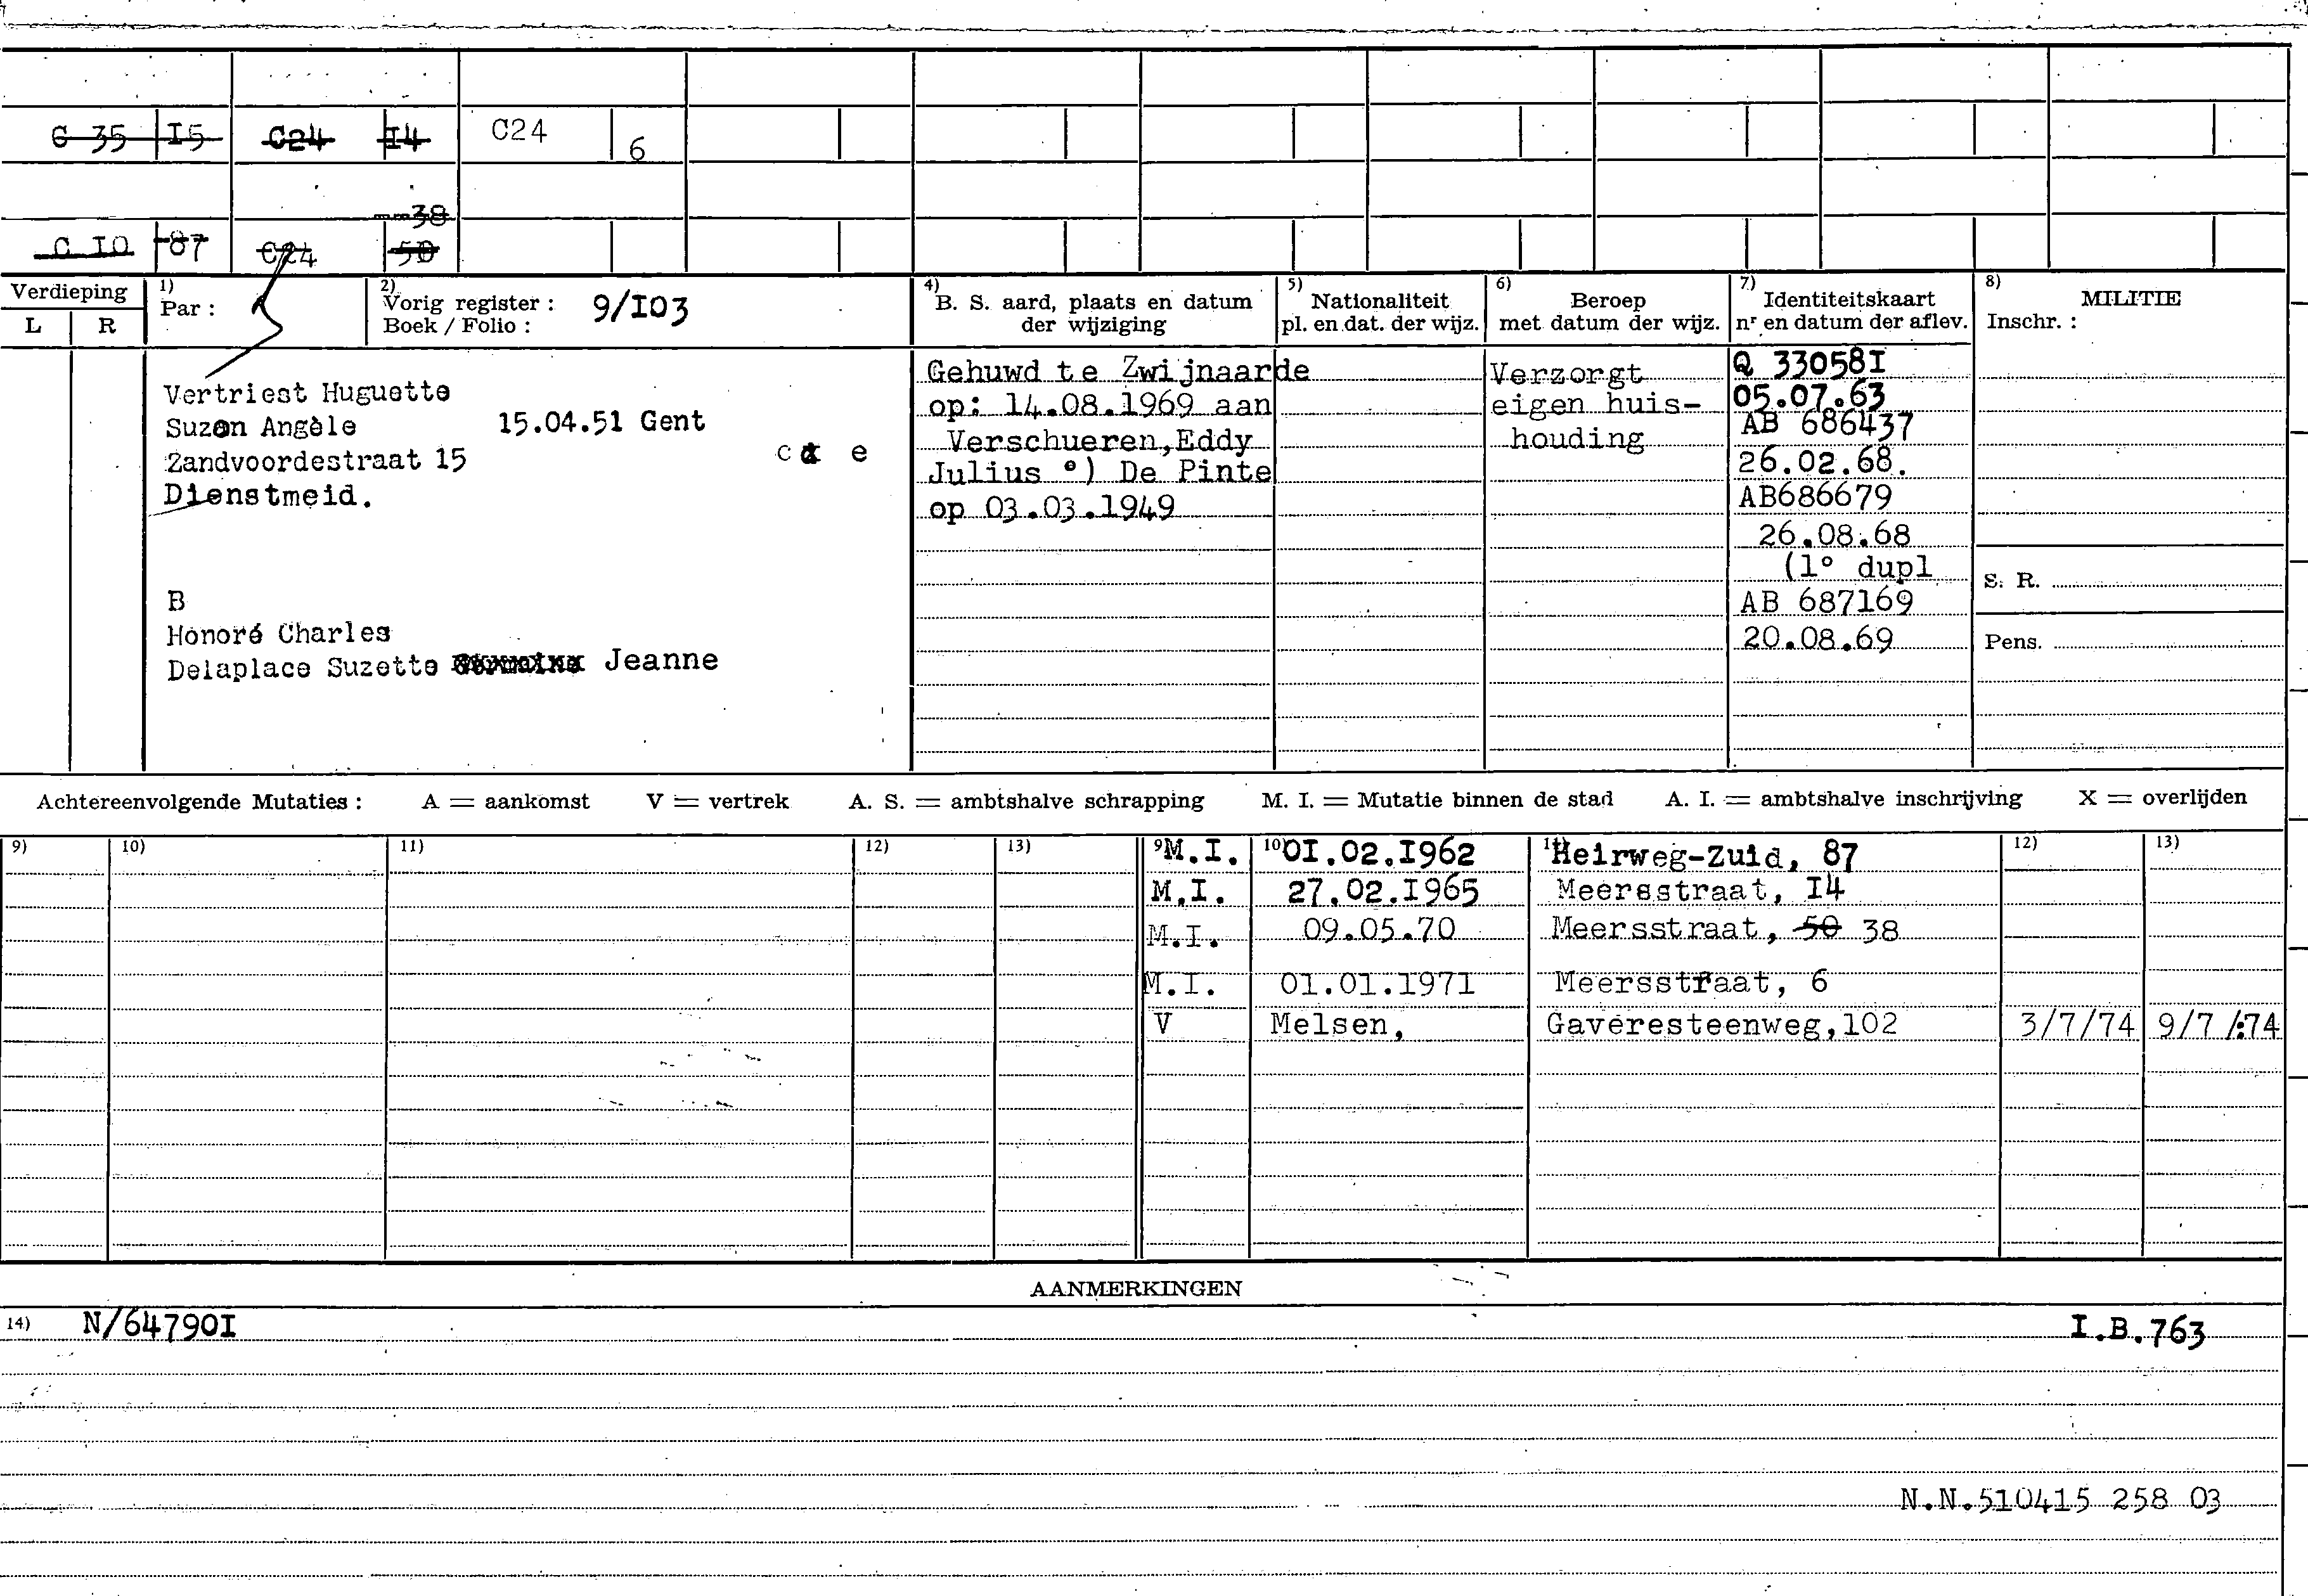 G 35 I5 C24 I4 C24 6
38
C I0 87 C24 50
Verdieping
L R
1)
Par :
2)
Vorig register : 9/I03
Boek / Folio :
4)
B. S. aard, plaats en datum
der wijziging
5)
Nationaliteit
pl. en dat. der wijz.
6)
Beroep
met datum der wijz.
7)
Identiteitskaart
nr en datum der aflev.
8)
MILITIE
Inschr. :
Vertriest Huguette
Suzan Angèle 15.04.51 Gent
Zandvoordestraat 15 c e
Dienstmeid.
B
Honoré Charles
Delaplace Suzette Jeanne
Gehuwd te Zwijnaarde
op: 14.08.1969 aan
Verschueren,Eddy
Julius °) De Pinte
op 03.03.1949
Verzorgt
eigen huis-
houding
Q 33058I
05.07.63
AB 686437
26.02.68.
AB686679
26.08.68
(1° dupl
AB 687169
20.08.69
S. R.
Pens.
Achtereenvolgende Mutaties : A = aankomst V = vertrek A. S. = ambtshalve schrapping M. I. = Mutatie binnen de stad A. I. = ambtshalve inschrijving X = overlijden
9) 10) 11) 12) 13) 9 10) 11 12) 13)
M.I. 0I.02.I962 Heirweg-Zuid, 87
M.I. 27.02.I965 Meersstraat, I4
M.I. 09.05.70 Meersstraat, 50 38
M.I. 01.01.1971 Meersstraat, 6
V Melsen, Gaveresteenweg,102 3/7/74 9/7/:74
AANMERKINGEN
14) N/64790I I.B.763
N.N.510415 258 03